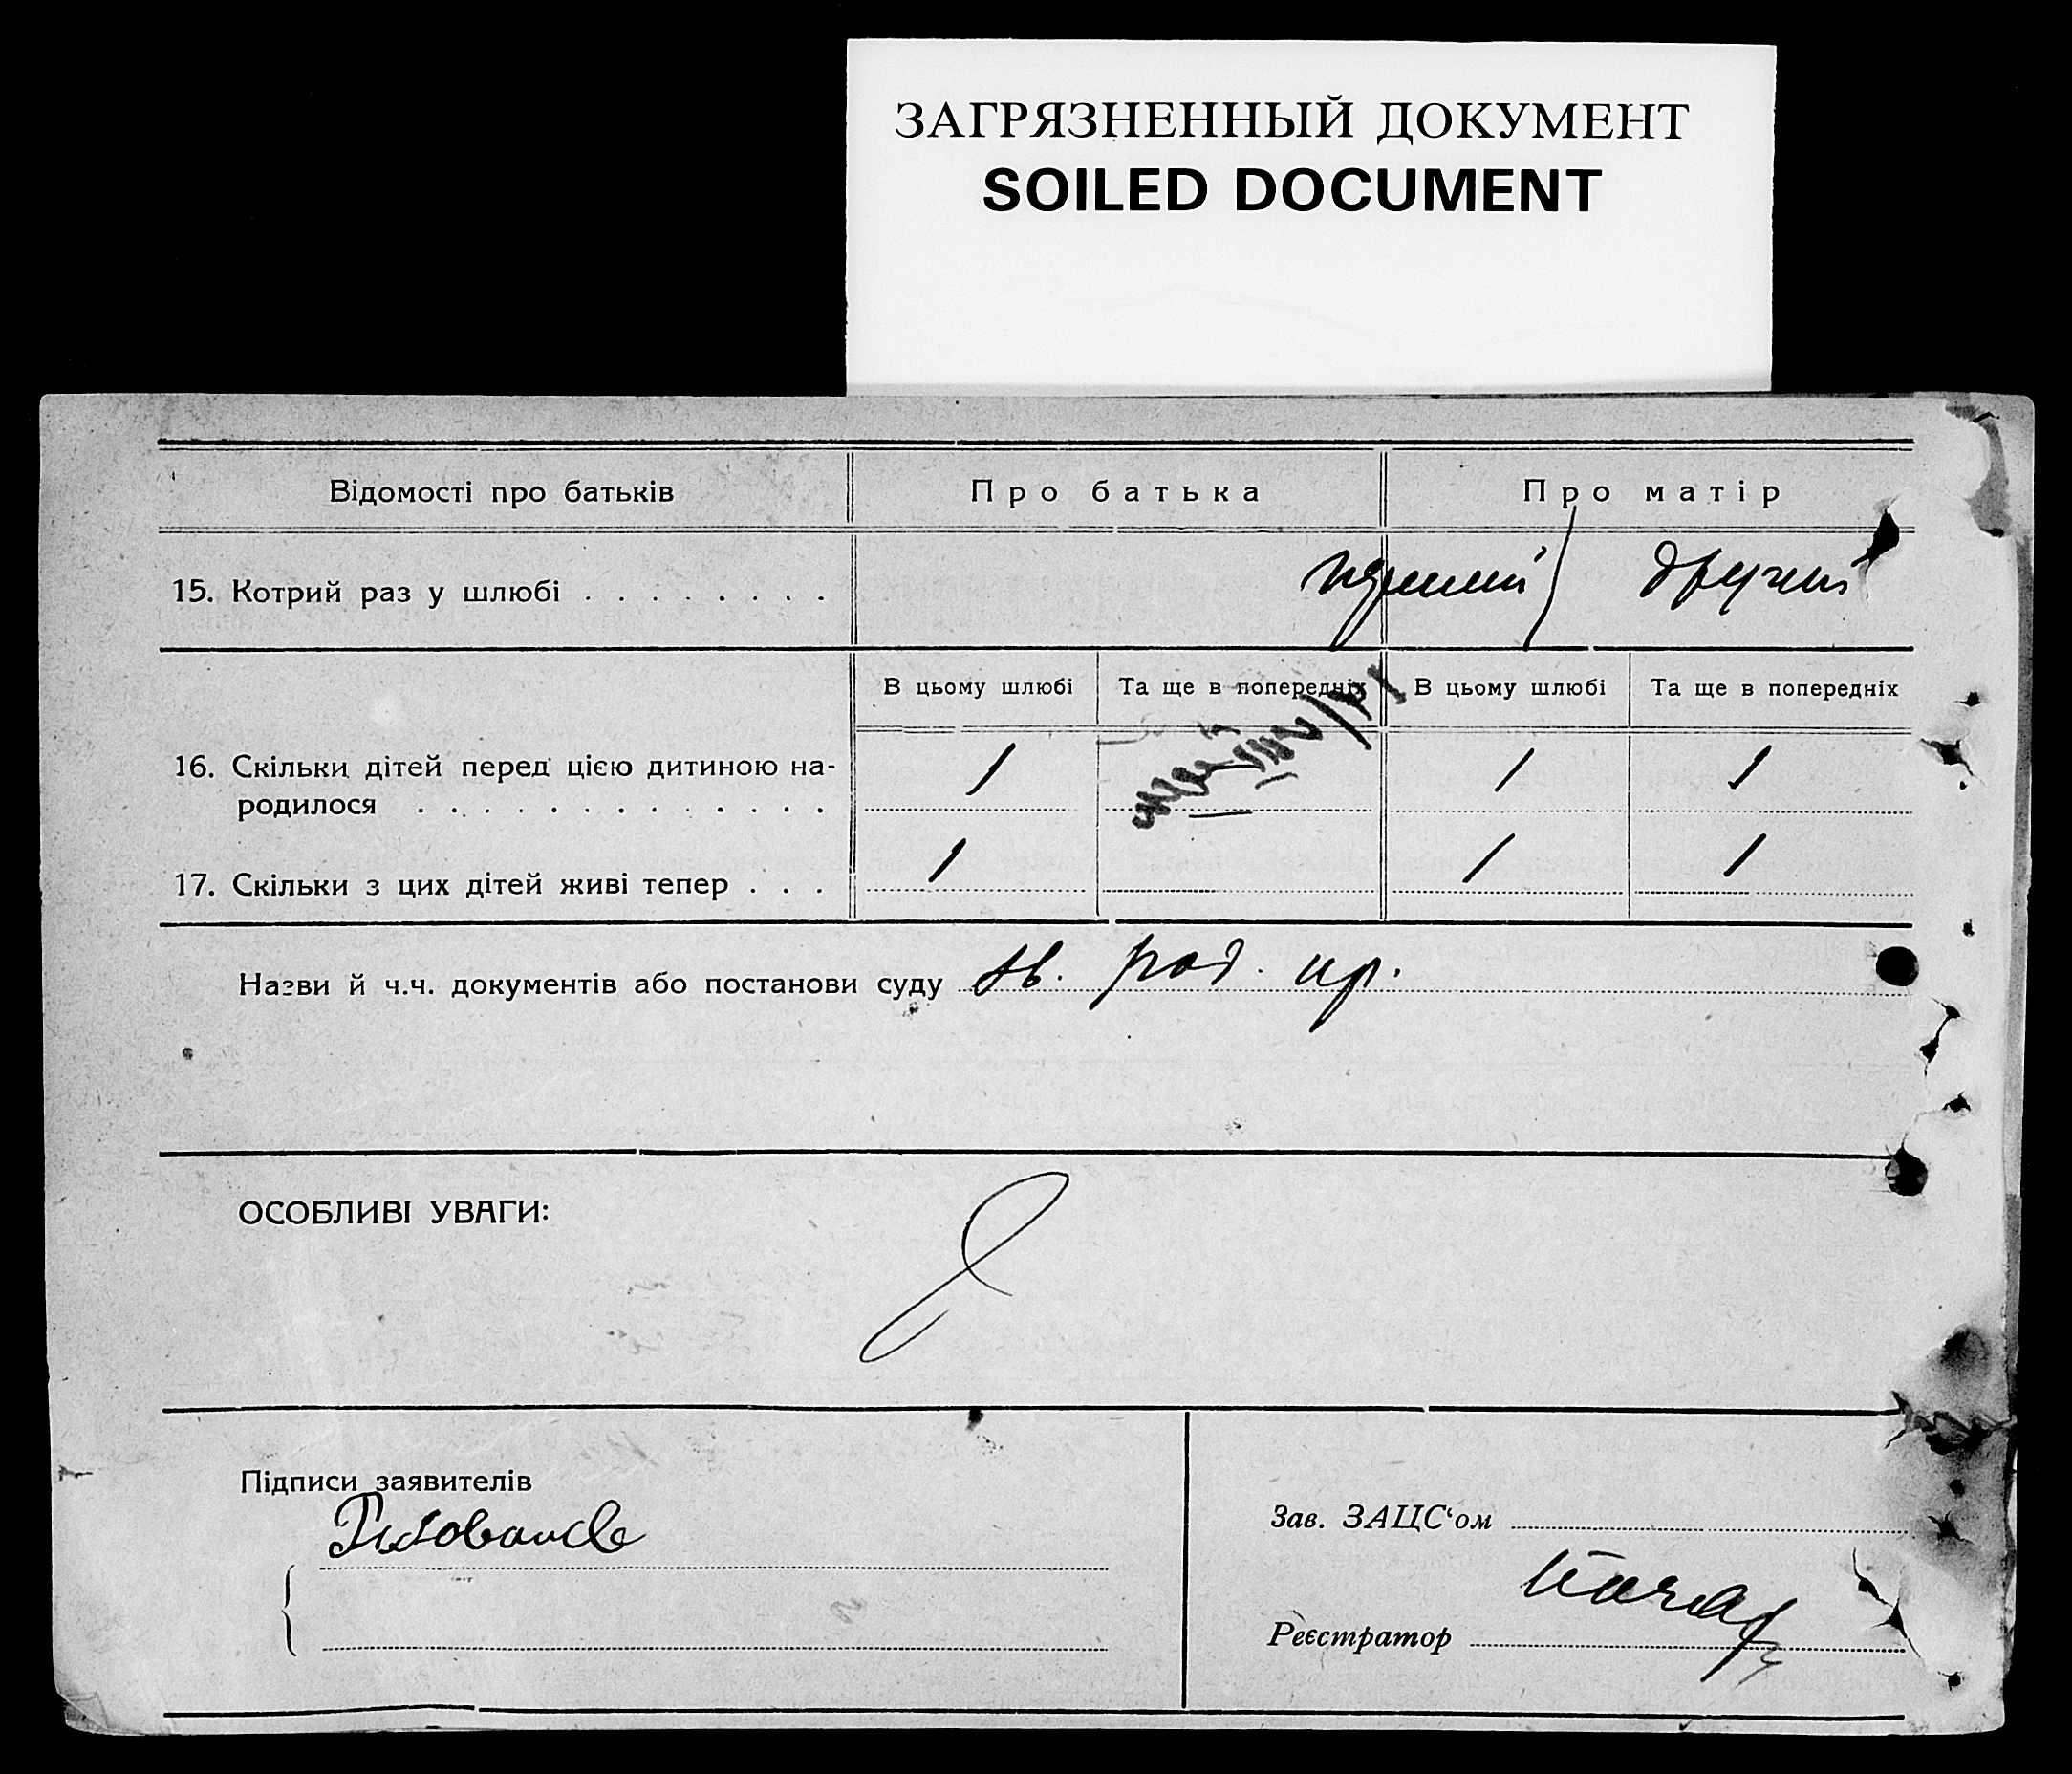 ЗАГРЯЗНЕННЫЙ ДОКУМЕНТ
SOILED DOCUMENT
Відомості про батьків Про батька Про матір
15. Котрий раз у шлюбі . . . . . . . . перший другий
В цьому шлюбі Та ще в попередніх В цьому шлюбі Та ще в попередніх
16. Скільки дітей перед цією дитиною на- 1 1 1
родилося . . . . . . . . . . . . .
17. Скільки з цих дітей живі тепер . . . 1 1 1
Назви й ч.ч. документів або постанови суду зв. род. пр.
ОСОБЛИВІ УВАГИ:
Підписи заявителів
Зав. ЗАЦС‘ом
Реєстратор